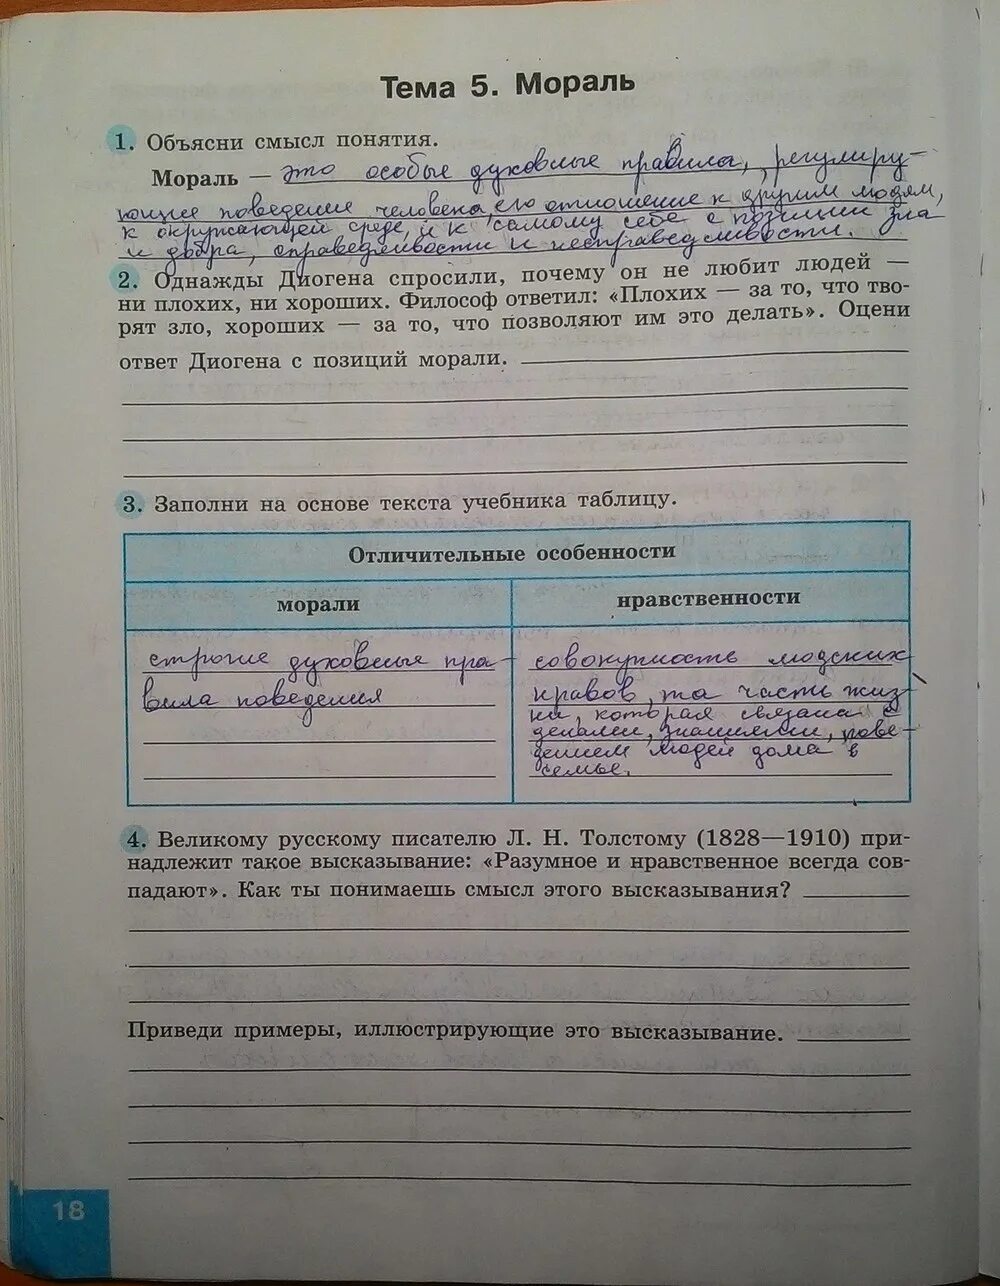 Тема 5. Мораль
1. Объясни смысл понятия.
Мораль — это особые духовные правила, регулиру-
ющие поведение человека, его отношение к другим людям,
к окружающей среде, и к самому себе с позиции зла
и добра, справедливости и несправедливости.
2. Однажды Диогена спросили, почему он не любит людей —
ни плохих, ни хороших. Философ ответил: «Плохих — за то, что тво-
рят зло, хороших — за то, что позволяют им это делать». Оцени
ответ Диогена с позиций морали.
3. Заполни на основе текста учебника таблицу.
Отличительные особенности
морали
нравственности
строгие духовные пра-
вила поведения
совокупность людских
нравов, та часть жиз-
ни, которая связана с
делами, знаниями, пове-
дением людей дома в
семье.
4. Великому русскому писателю Л. Н. Толстому (1828—1910) при-
надлежит такое высказывание: «Разумное и нравственное всегда сов-
падают». Как ты понимаешь смысл этого высказывания?
Приведи примеры, иллюстрирующие это высказывание.
18